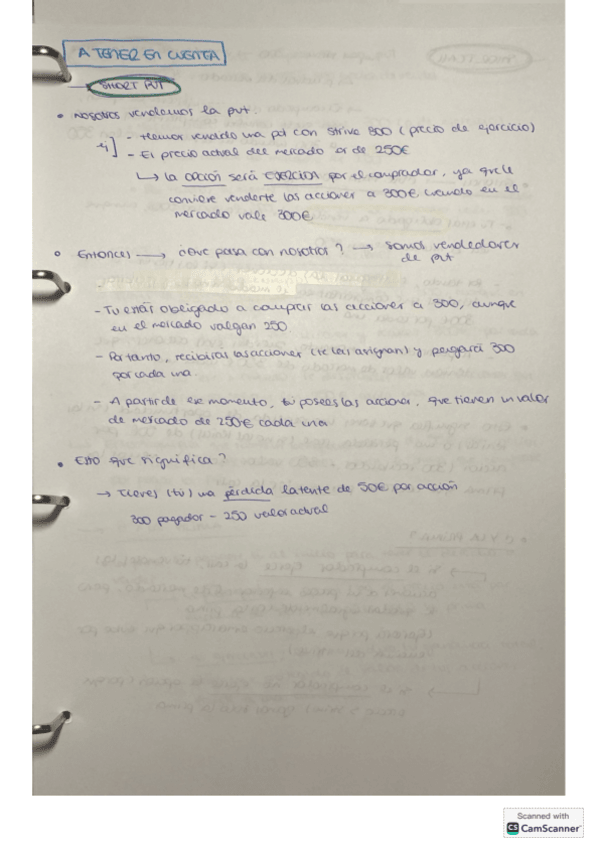 A TENER EN CUENTA
SHORT PUT
• Nosotros vendemos la put:
ej] - Hemos vendido una put con strike 300 (precio de ejercicio)
- El precio actual del mercado es de 250€
↳ la opción será EJERCIDA por el comprador, ya que le
conviene venderte las acciones a 300€ cuando en el
mercado vale 300€
• Entonces → ¿Que pasa con nosotros? → somos vendedores
de put
- Tu estás obligado a comprar las acciones a 300, aunque
en el mercado valgan 250.
- Por tanto, recibiras las acciones (te las asignan) y pagará 300
por cada una.
- A partir de ese momento, tu posees las acciones, que tienen un valor
de mercado de 250€ cada una
• Esto que significa?
→ Tienes (tú) una pérdida latente de 50€ por acción
300 pagados - 250 valor actual
Scanned with
CS CamScanner